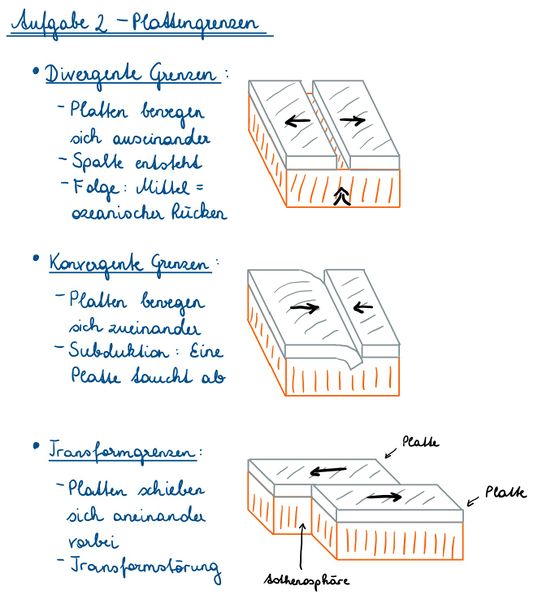 Aufgabe 2 - Plattengrenzen
• Divergente Grenzen:
- Platten bewegen
sich auseinander
- Spalte entsteht
- Folge: Mittel =
ozeanischer Rücken
• Konvergente Grenzen:
- Platten bewegen
sich zueinander
- Subduktion: Eine
Platte taucht ab
• Transformgrenzen:
- Platten schieben
sich aneinander
vorbei
- Transformstörung
Platte
Platte
Asthenosphäre